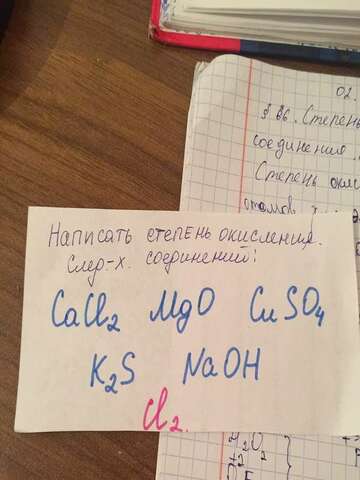 02
§ 26. Степень
соединения
Степень окис
атомов
Написать степень окисления
след-х. соединений:
CaCl₂ MgO CuSO₄
K₂S NaOH
Cl₂.
H₂O₂